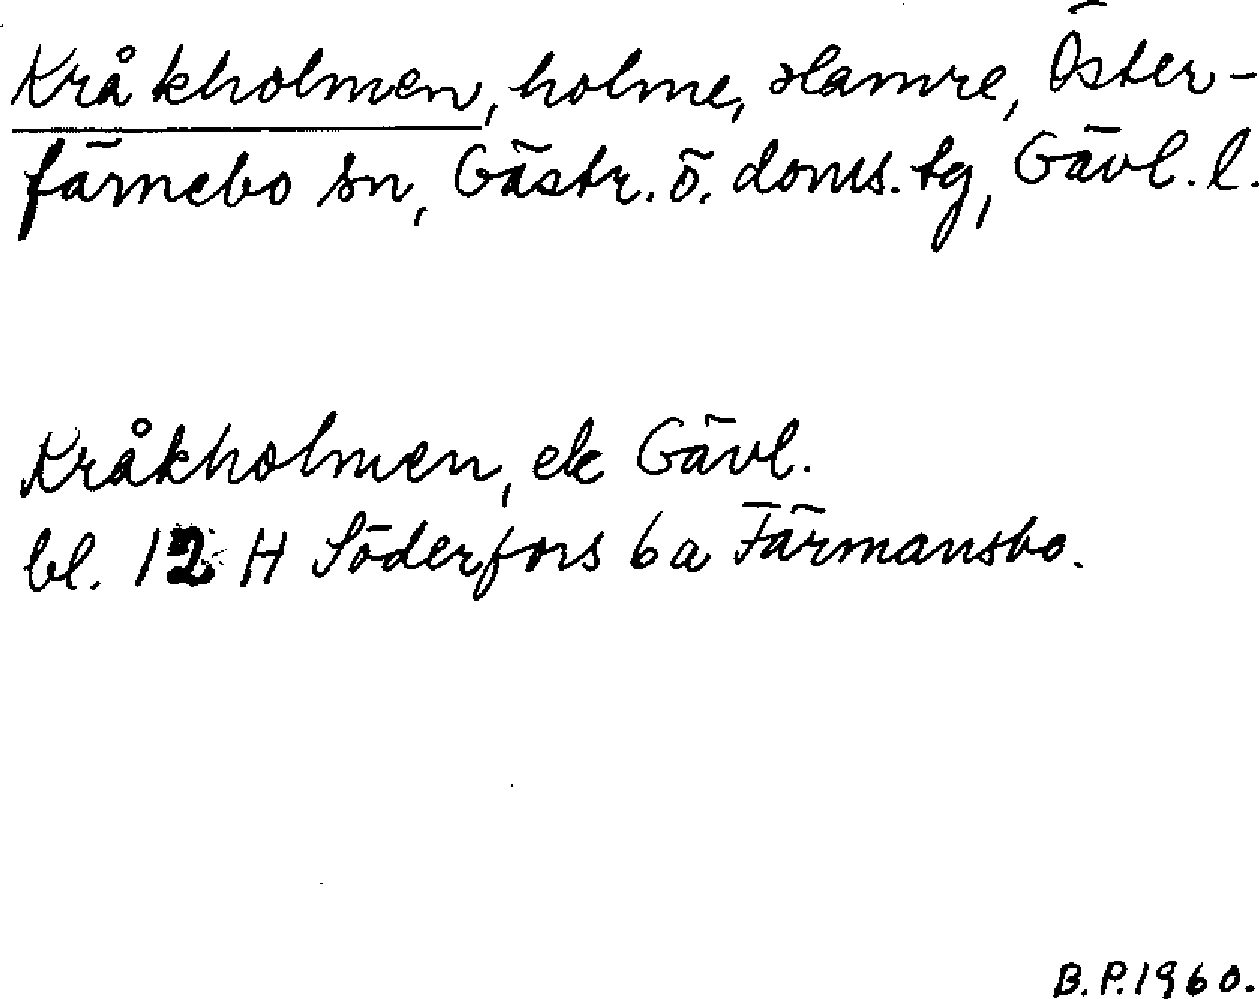 Kråkholmen, holme, Hamre, Öster-
färnebo sn, Gästr. ö. doms. tg, Gävl. l.
Kråkholmen, ek Gävl.
bl. 12 H Söderfors 6 a Färmansbo.
B. P. 1960.